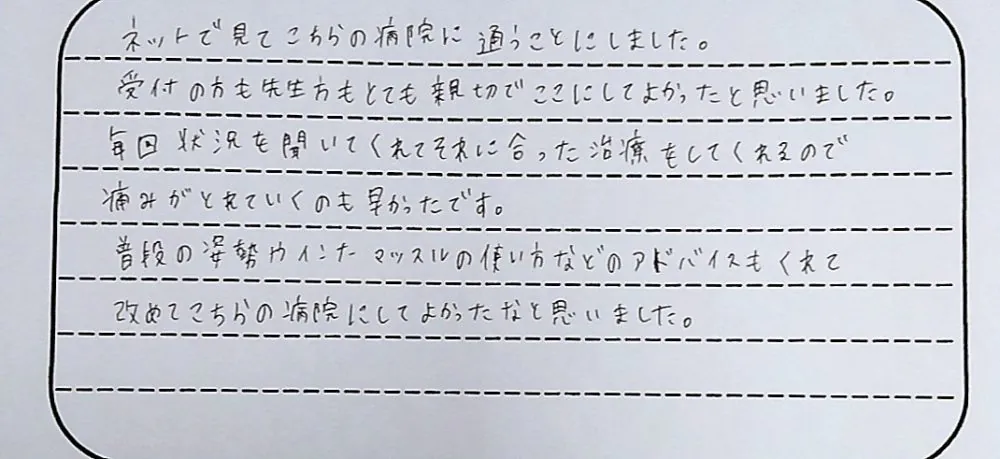 ネットで見てこちらの病院に通うことにしました。
受付の方も先生方もとても親切でここにしてよかったと思いました。
毎回状況を聞いてくれてそれに合った治療をしてくれるので
痛みがとれていくのも早かったです。
普段の姿勢やインたマッスルの使い方などのアドバイスもくれて
改めてこちらの病院にしてよかったなと思いました。